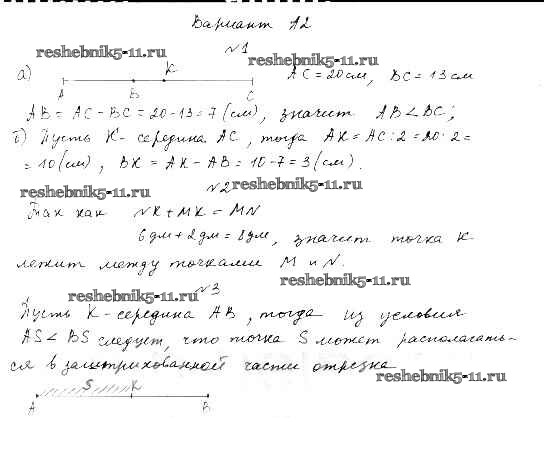 Вариант А2
reshebnik5-11.ru
№1
reshebnik5-11.ru
а) К AC = 20см, BC = 13см
А В С
AB = AC - BC = 20-13 = 7 (см), значит AB < BC;
б) Пусть К - середина AC, тогда AK = AC : 2 = 20 : 2 =
= 10 (см), BK = AK - AB = 10 - 7 = 3 (см).
reshebnik5-11.ru №2 reshebnik5-11.ru
Так как NK + MK = MN
6дм + 2дм = 8дм, значит точка К
лежит между точками M и N.
reshebnik5-11.ru
reshebnik5-11.ru №3
Пусть К - середина AB, тогда из условия
AS < BS следует, что точка S может располагать-
ся в заштрихованной части отрезка
reshebnik5-11.ru
S К
А В